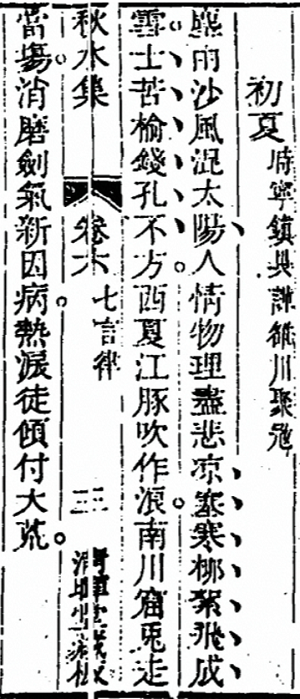 初夏 時寧鎮兵譁維川聚
塵雨沙風混太陽人情物理盡悲凉塞寒柳絮飛成
雪士苦榆錢孔不方西夏江豚吹作浪南川窟兎走
秋水集 卷六 七言律 三
當場消磨劍氣新因病熱淚徒傾付大荒